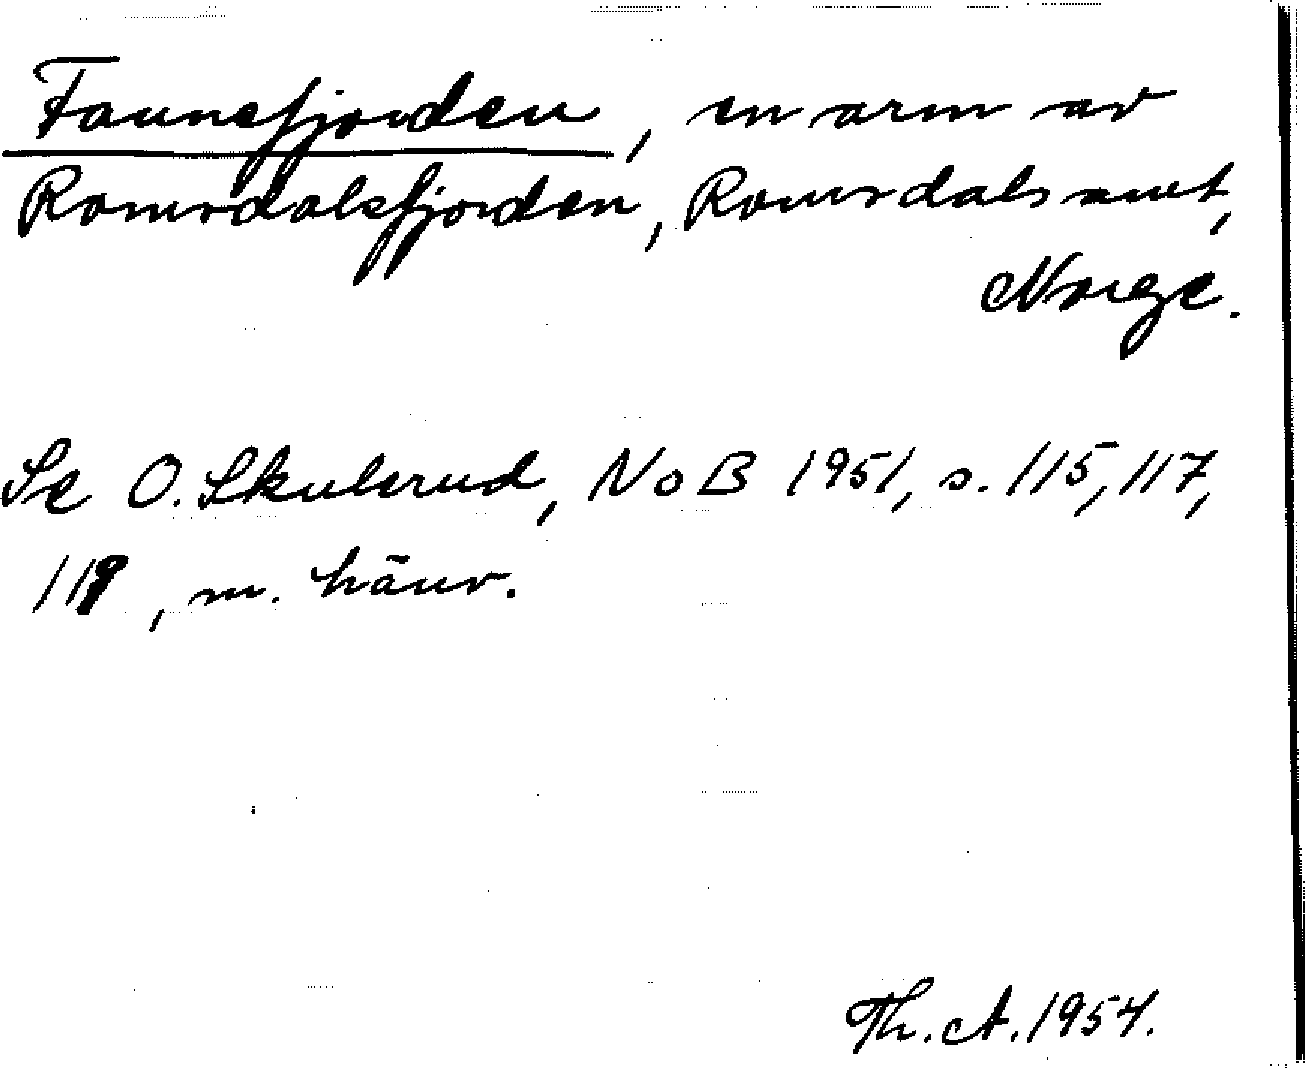 Faunefjorden, en arm av
Romsdalsfjorden, Romsdals amt,
Norge.
Se O. Skulerud, NoB 1951, s. 115, 117,
119, m. hänv.
Th. A. 1954.